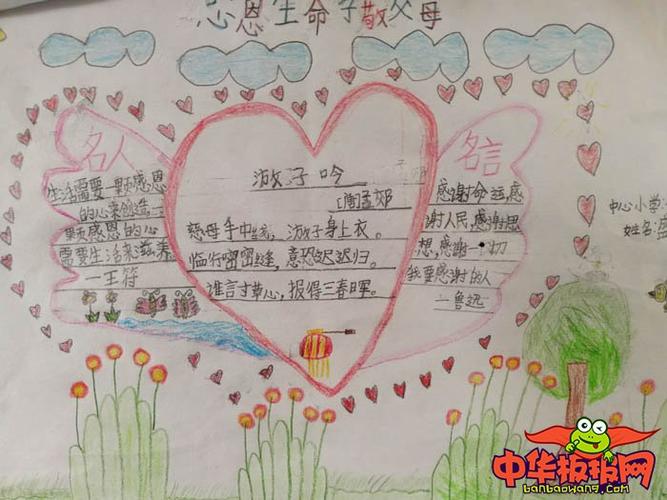 感恩生命孝敬父母
名人
生活需要一颗感恩
的心来创造,一
颗感恩的心
需要生活来滋养
—王符
游子吟
[唐]孟郊
慈母手中线,游子身上衣。
临行密密缝,意恐迟迟归。
谁言寸草心,报得三春晖。
名言
感谢命运,感
谢人民,感谢思
想,感谢一切
我要感谢的人
—鲁迅
中心小学
姓名:
中华板报网
banbaowang.com